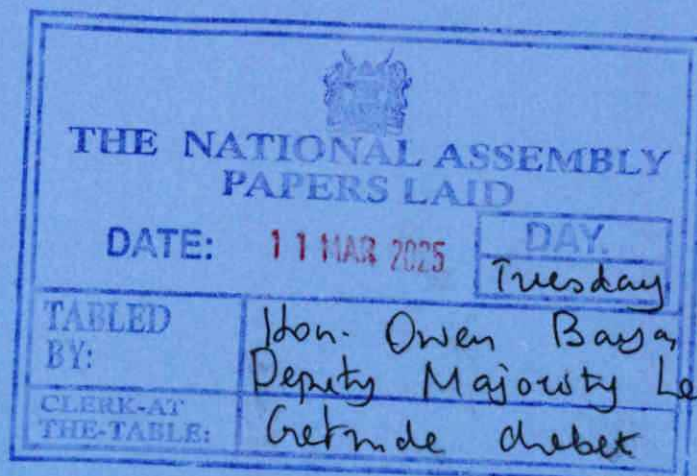 THE NATIONAL ASSEMBLY
PAPERS LAID
DATE: 11 MAR 2025
DAY.
Tuesday
TABLED BY:
Hon. Owen Baya,
Deputy Majority Le
CLERK-AT THE-TABLE:
Getrude Chebet